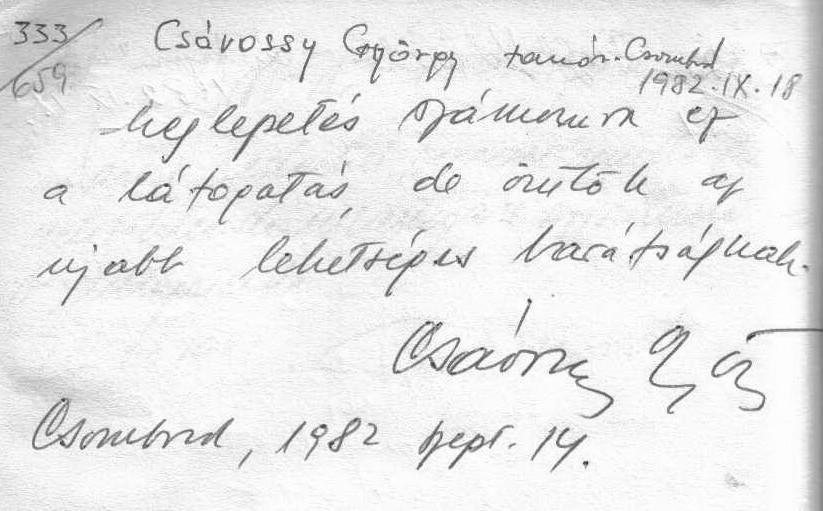 333/659
Csávossy György tanár. Csombord
1982.IX.18
Meglepetés számomra ez
a látogatás, de örülök az
ujabb lehetséges barátságnak.
Csávossy Gy
Csombord, 1982 szept. 14.